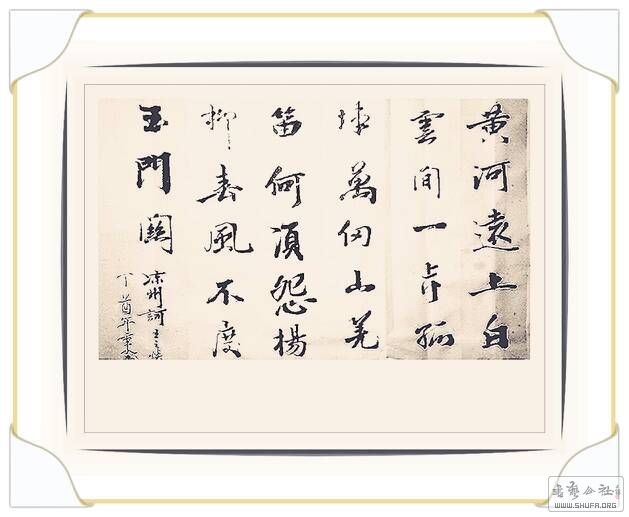 黄河遠上白
雲間一片孤
城萬仞山羌
笛何須怨楊
柳春風不度
玉門關
凉州詞王之渙
丁酉年
书艺公社
WWW.SHUFA.ORG